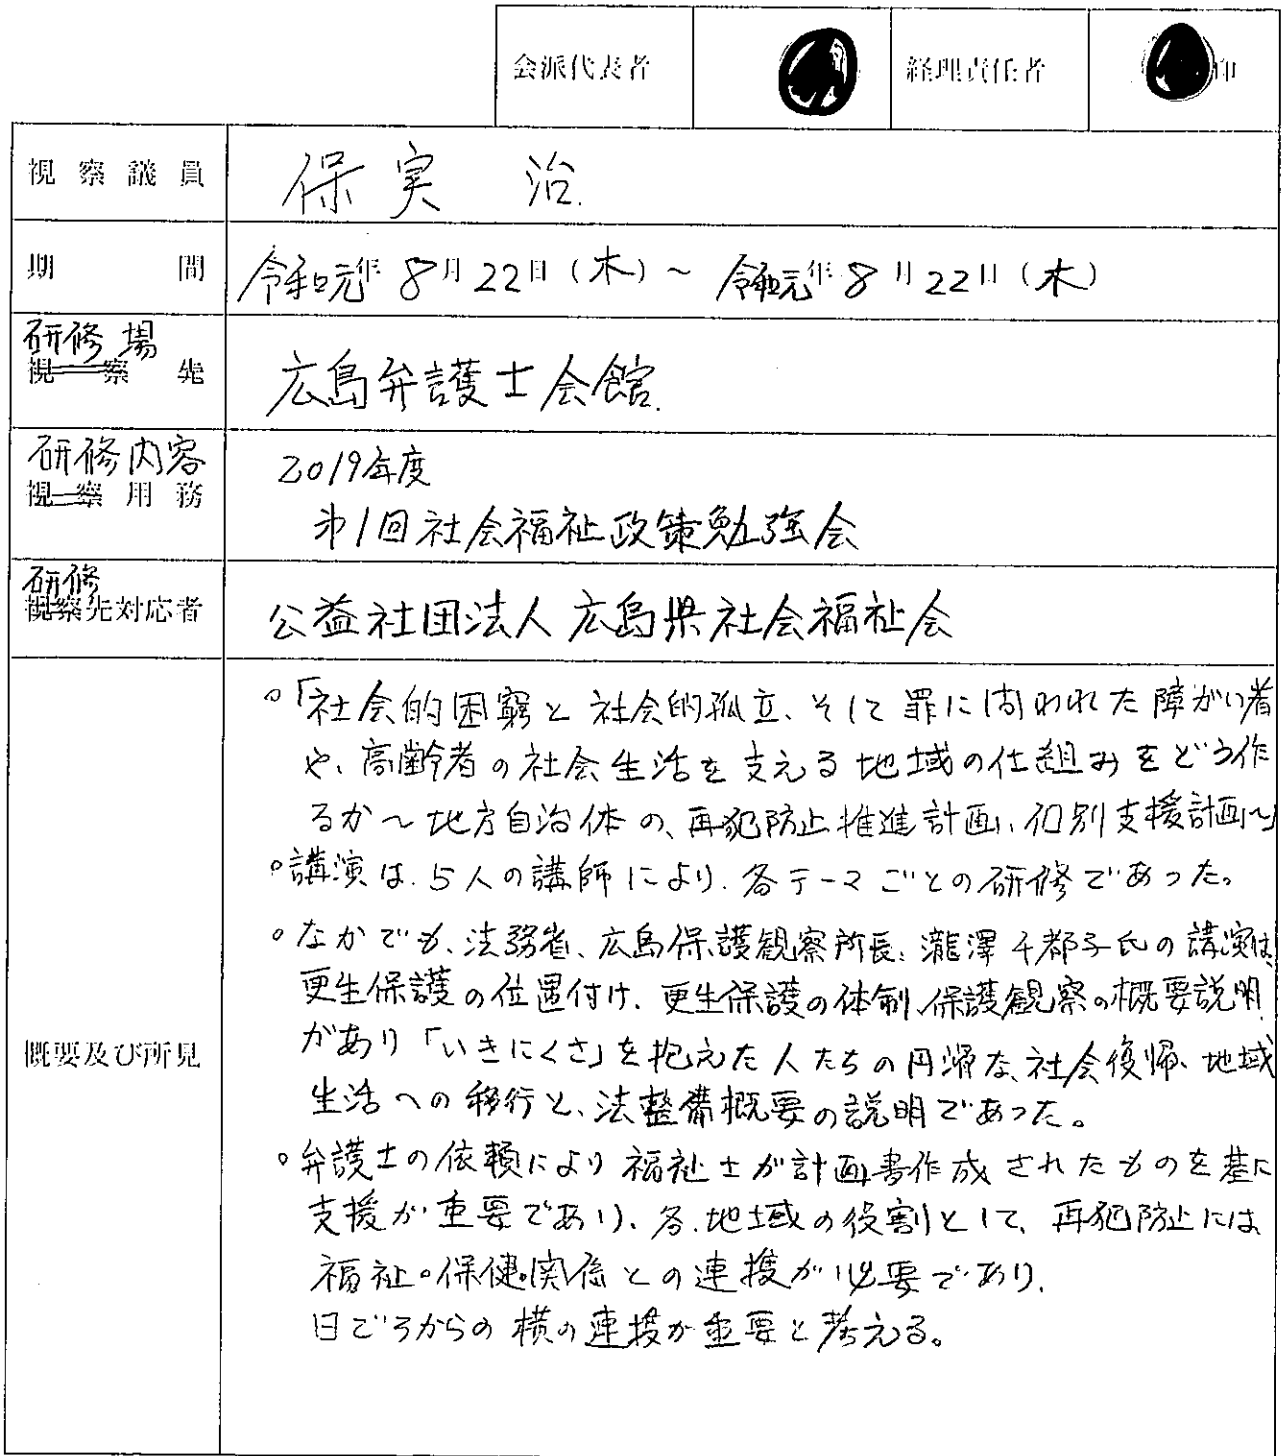 会派代表者 経理責任者 印
視察議員 保実 治.
期間 令和元年 8月22日（木）～ 令和元年 8月22日（木）
研修場
視察先 広島弁護士会館.
研修内容
視察用務 2019年度
第1回社会福祉政策勉強会
研修
視察先対応者 公益社団法人 広島県社会福祉会
概要及び所見
○「社会的困窮と社会的孤立、そして罪に問われた障がい者
や、高齢者の社会生活を支える地域の仕組みをどう作
るか～地方自治体の、再犯防止推進計画、個別支援計画～」
○講演は、5人の講師により、各テーマごとの研修であった。
○なかでも、法務省、広島保護観察所長、瀧澤千都子氏の講演は、
更生保護の位置付け、更生保護の体制、保護観察の概要説明
があり「いきにくさ」を抱えた人たちの円滑な、社会復帰、地域
生活への移行と、法整備概要の説明であった。
○弁護士の依頼により福祉士が計画書作成されたものを基に
支援が重要であり、各地域の役割として、再犯防止には
福祉・保健・関係との連携が必要であり、
日ごろからの横の連携が重要と考える。